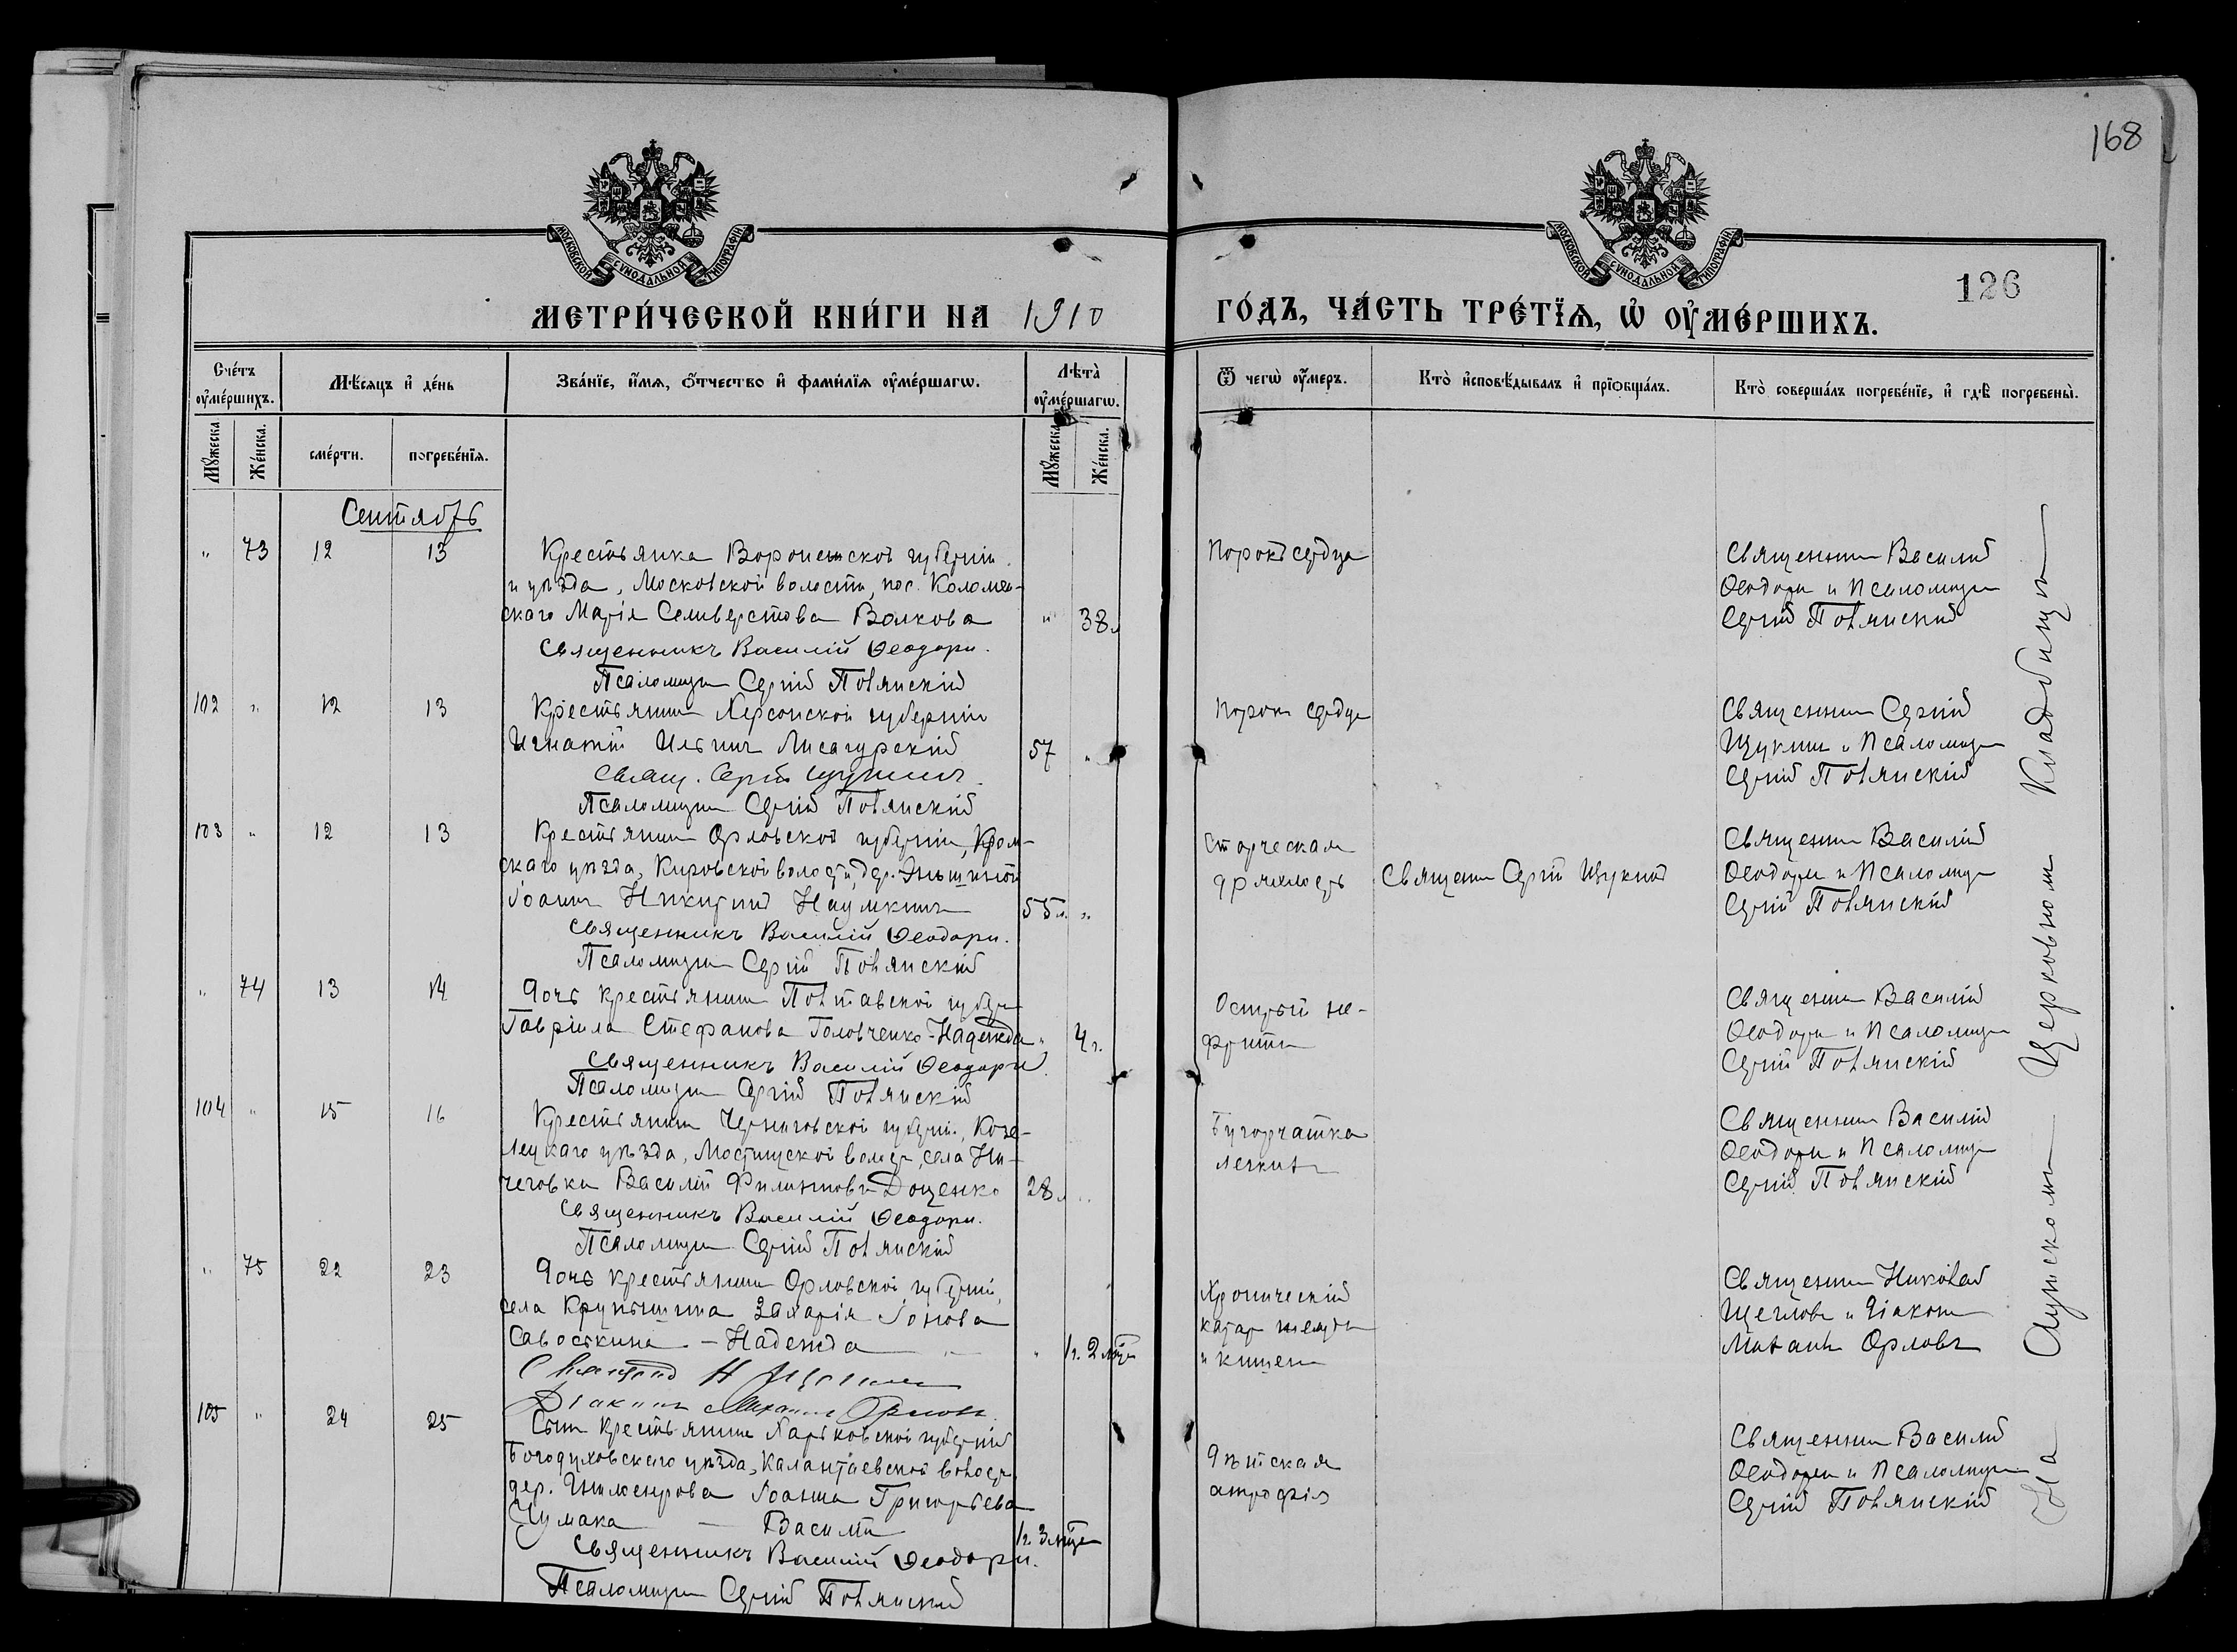 168
МОСКОВСКОЙ СѴНОДАЛЬНОЙ ТИПОГРАФІИ
МОСКОВСКОЙ СѴНОДАЛЬНОЙ ТИПОГРАФІИ
126
МЕТРИ́ЧЕСКОЙ КНИ́ГИ НА 1910 ГО́ДЪ, ЧА́СТЬ ТРЕ́ТЇѦ, Ѡ҆ ОУ҆МЕ́РШИХЪ.
Сче́тъ оу҆ме́ршихъ.
Мѣ́сяцъ и҆ де́нь
Зва́нїе, и҆́мѧ, ѻ҆́тчество и҆ фами́лїѧ оу҆ме́ршагѡ.
Лѣ́та оу҆ме́ршагѡ.
Ѿ чегѡ̀ оу҆́меръ.
Кто̀ и҆сповѣ́дывалъ и҆ прїѻбща́лъ.
Кто̀ соверша́лъ погребе́нїе, и҆ гдѣ̀ погребены̀.
Мꙋ́жеска.
Же́нска.
сме́рти.
погребе́нїѧ.
Мꙋ́жеска.
Же́нска.
Сентябрь
" 73 12 13 Крестьянка Воронежской губерніи
и уѣзда, Московской волости, пос. Коломен-
скаго Марія Селиверстова Волкова " 38 л
Священникъ Василій Ѳеодори.
Псаломщик Сергій Полянскій
Порокъ сердца
Священник Василий
Ѳеодори и Псаломщик
Сергій Полянский
102 " 12 13 Крестьянин Херсонской губерніи
Игнатій Ильич Лисагурскій 57 "
Свящ. Сергій Щукин
Псаломщик Сергій Полянскій
Порок сердца
Священник Сергій
Щукин и Псаломщик
Сергій Полянскій
103 " 12 13 Крестьянин Орловской губерніи, Кром-
скаго уѣзда, Кировской волости, дер.
Іоанн Никитин Наумкинъ 55 л. "
Священникъ Василій Ѳеодори.
Псаломщик Сергій Полянскій
Старческая
дряхлость
Священ Сергій Щукин
Священник Василій
Ѳеодори и Псаломщ
Сергій Полянскій
" 74 13 14 Дочь крестьянина Полтавской губер
Гавріила Стефанова Головченко - Надежда " 4 г.
Священникъ Василій Ѳеодори
Псаломщик Сергій Полянскій
Острый не-
фрит
Священник Василій
Ѳеодори и Псаломщик
Сергій Полянскій
104 " 15 16 Крестьянин Черниговской губерніи, Козе-
лецкаго уѣзда, Мостищской волост, села Ни-
чеговки Василій Филиппов Доценко 28 л "
Священникъ Василій Ѳеодори.
Псаломщик Сергій Полянскій
Бугорчатка
легких
Священник Василій
Ѳеодори и Псаломщик
Сергій Полянскій
" 75 22 23 Дочь крестьянина Орловской губерніи,
села Захарія Іонова
Савоськина - Надежда " 1 г. 2 мѣс
Священник Н Щеглов
Діаконъ Михаилъ Орловъ.
Хроническій
катар желудк
и кишек
Священник Николай
Щеглов и Діакон
Михаилъ Орловъ
105 " 24 25 Сын крестьянина Харьковской губерніи
Богодуховскаго уѣзда, Калантаевской волост
дер. Іоанна Григорьева
Чумака - Василій 1 г. 3 мѣс
Священникъ Василій Ѳеодори.
Псаломщик Сергій Полянский
Дѣтская
атрофія
Священник Василій
Ѳеодори и Псаломщик
Сергій Полянскій
На Церковном Кладбищѣ